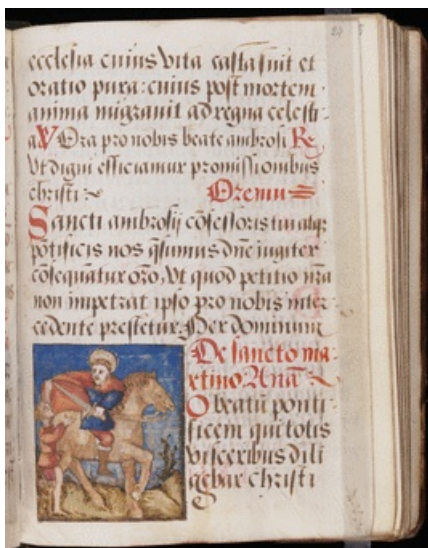 ecclesia cuius vita casta fuit et
oratio pura: cuius post mortem
anima migravit ad regna celesti-
a V Ora pro nobis beate ambrosi Re
Vt digni efficiamur promissionibus
christi: Oremu
Sancti ambrosij cõfessoris tui atqꝫ
põtificis nos q̃sumus dñe iugiter
cõsequatur oro, Vt quod petitio nra
non impetrat ipso pro nobis inter-
cedente prestetur. Per dominum
De sancto ma-
rtino Ana
O beatũ ponti-
ficem qui totis
visceribus dili
gebat christi